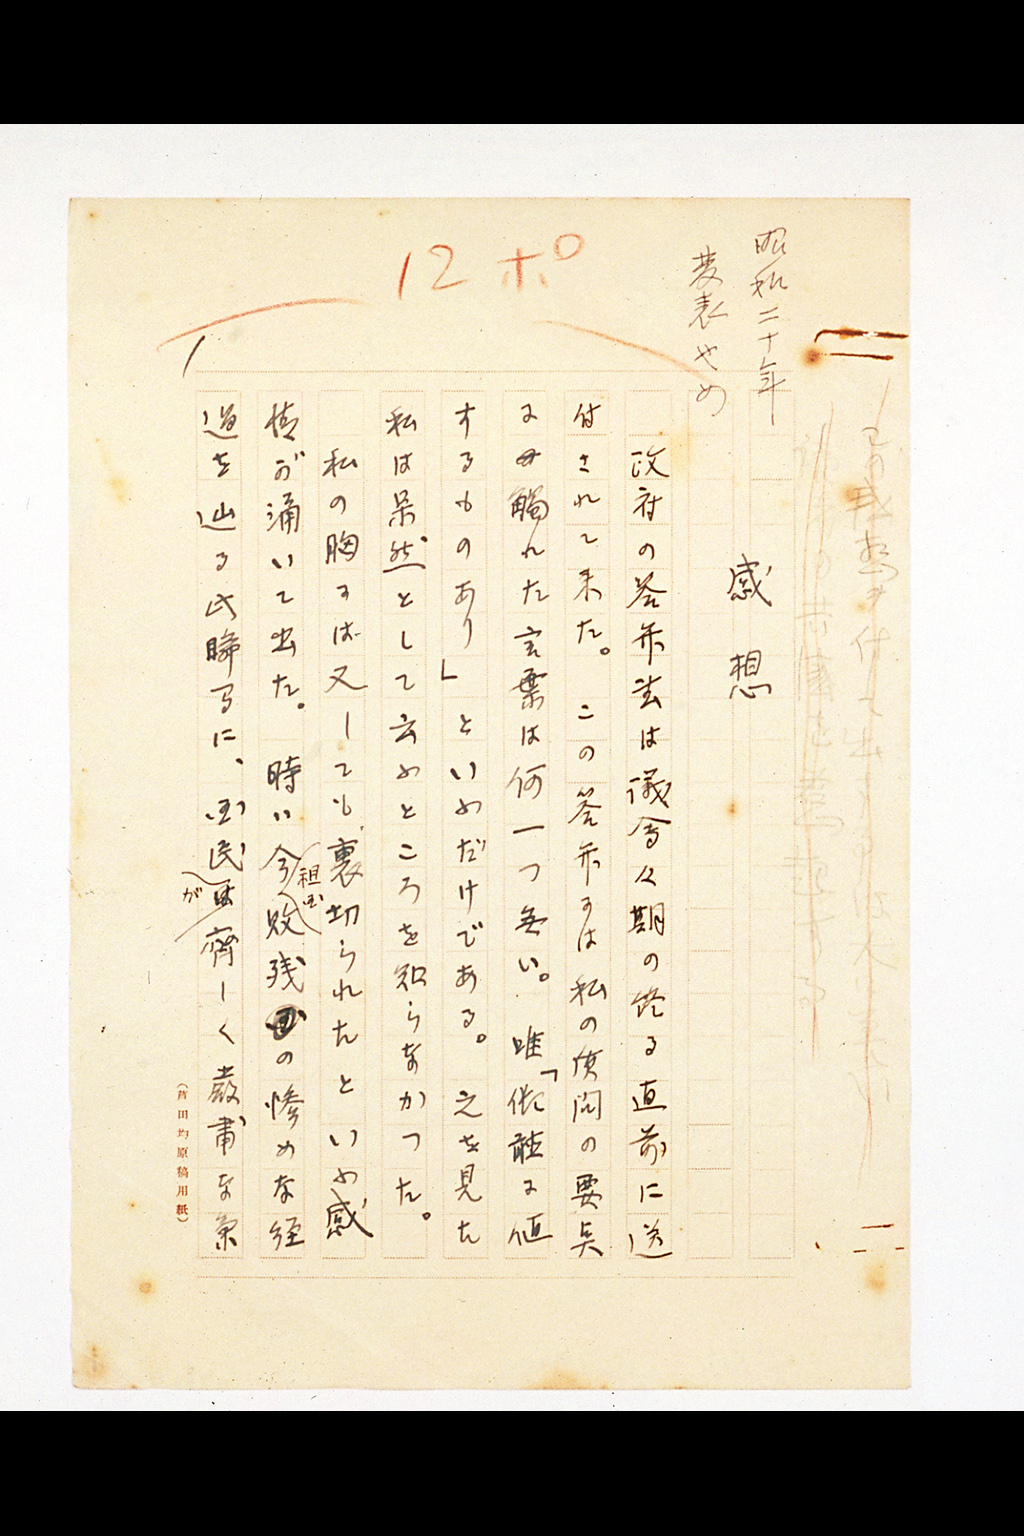 12ポ
昭和二十年
発表やめ
感想
政府の答弁書は議会々期の終る直前に送
付されて来た。この答弁書には私の質問の要点
に毋觸れた言葉は何一つ無い。唯「傾聴に値
するものあり」といふだけである。之を見た
私は呆然として云ふところを知らなかつた。
私の胸には又しても裏切られたといふ感
情が涌いて出た。時は今祖国敗残の惨めな経
過を辿る此時に、国民が齊しく厳粛な気
(芦田均原稿用紙)